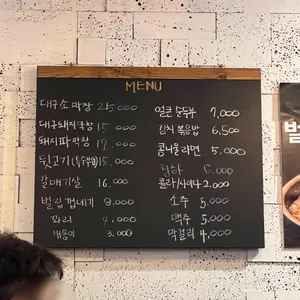 MENU
대구소막창 25,000
대구돼지막창 15,000
돼지파막창 17,000
뒷고기(특수부위) 15,000
갈매기살 16,000
벌집껍데기 8,000
꼬리 4,000
3,000
얼큰순두부 7,000
김치볶음밥 6,500
콩나물라면 5,000
6,000
콜라/사이다 2,000
소주 5,000
맥주 5,000
막걸리 4,000
벌